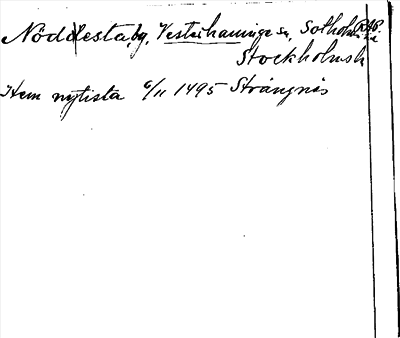 Nöddesta, by, Vesterhaninge sn, Sotholms
Stockholms l
Hem nytista 6/11 1495 Strängnäs